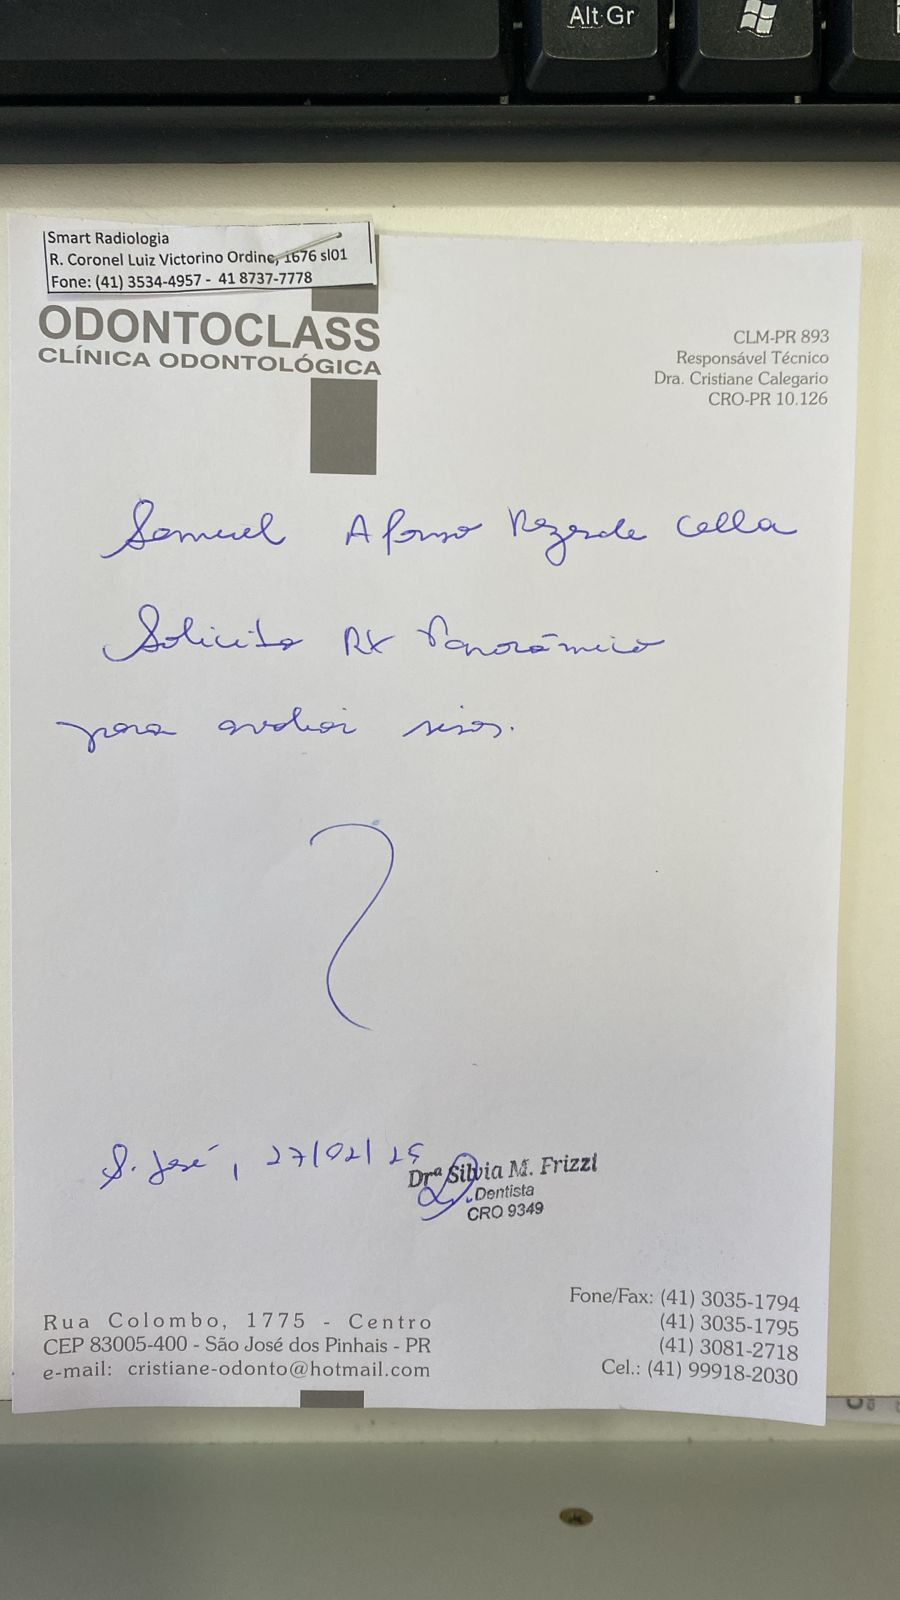 Alt Gr
Smart Radiologia
R. Coronel Luiz Victorino Ordine, 1676 sl01
Fone: (41) 3534-4957 - 41 8737-7778
ODONTOCLASS
CLÍNICA ODONTOLÓGICA
CLM-PR 893
Responsável Técnico
Dra. Cristiane Calegario
CRO-PR 10.126
Samuel Afonso Rezende Cella
Solicito RX Panorâmico
para avaliar sisos.
S. José, 27/02/25
Drª Silvia M. Frizzi
Dentista
CRO 9349
Rua Colombo, 1775 - Centro
CEP 83005-400 - São José dos Pinhais - PR
e-mail: cristiane-odonto@hotmail.com
Fone/Fax: (41) 3035-1794
(41) 3035-1795
(41) 3081-2718
Cel.: (41) 99918-2030